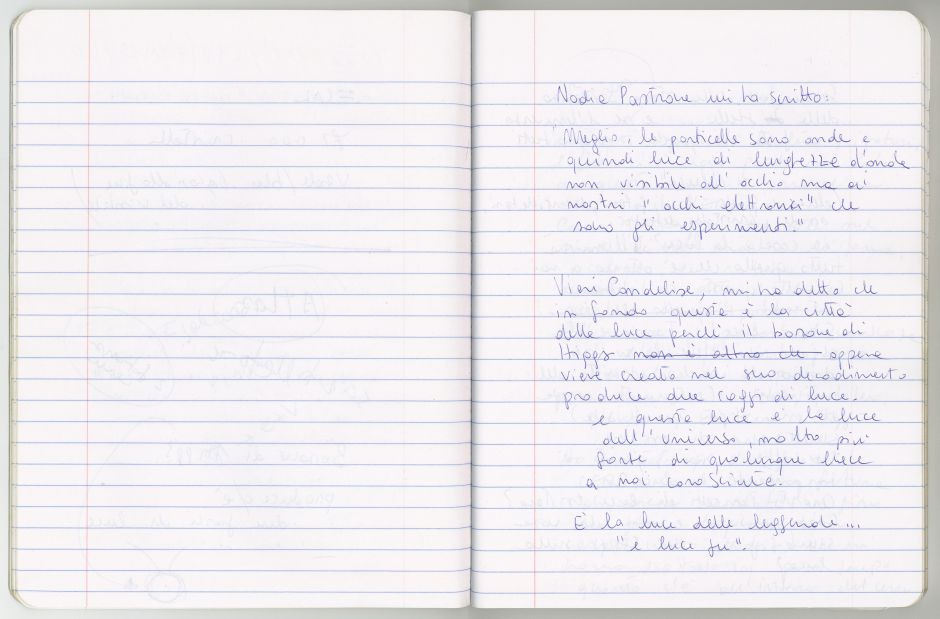 Nadia Pastrone mi ha scritto:
"Meglio, le particelle sono onde e
quindi luce di lunghezze d'onda
non visibile all'occhio ma ai
nostri "occhi elettronici" che
sono gli esperimenti."
Vieri Candelise, mi ha detto che
in fondo questa è la città
della luce perché il bosone di
Higgs non è altro che appena
viene creato nel suo decadimento
produce due raggi di luce.
e questa luce è la luce
dell'universo, molto più
forte di qualunque luce
a noi conosciuta.
È la luce delle leggende...
"e luce fu".